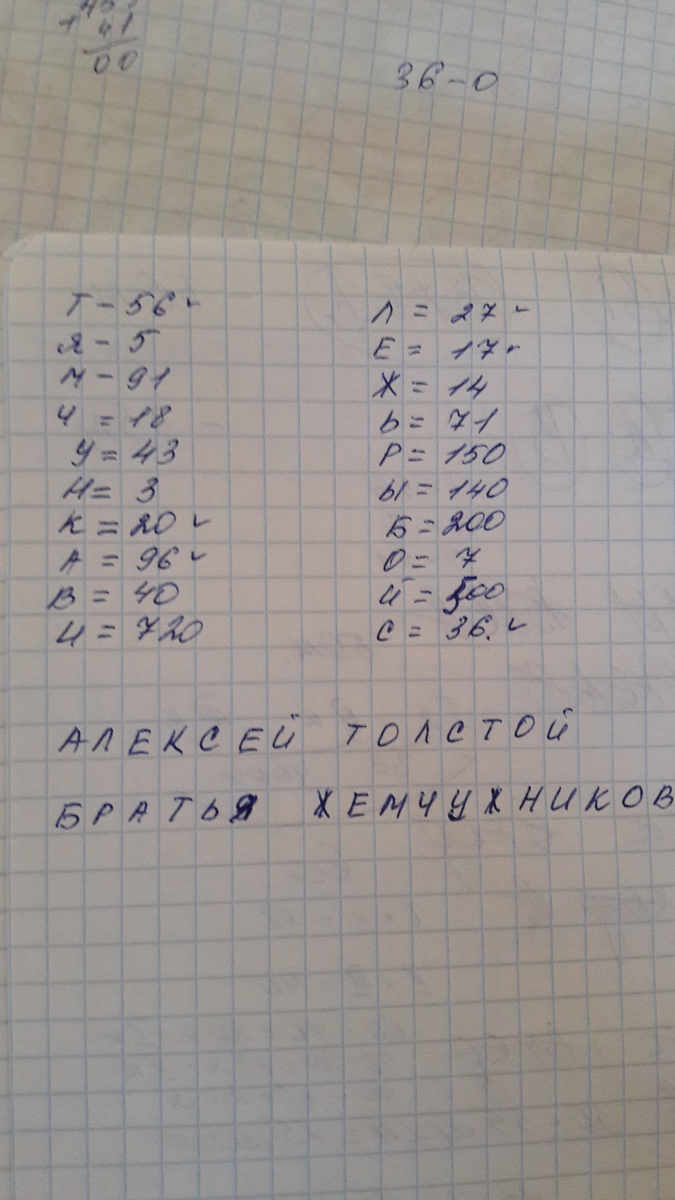 41
00
36-0
Т - 56 ✓
Я - 5
М - 91
Ч = 18
У = 43
Н = 3
К = 20 ✓
А = 96 ✓
В = 40
И = 720
Л = 27 ✓
Е = 17 ✓
Ж = 14
Ь = 71
Р = 150
Ы = 140
Б = 200
О = 7
Й = 500
С = 36. ✓
АЛЕКСЕЙ ТОЛСТОЙ
БРАТЬЯ ЖЕМЧУЖНИКОВ